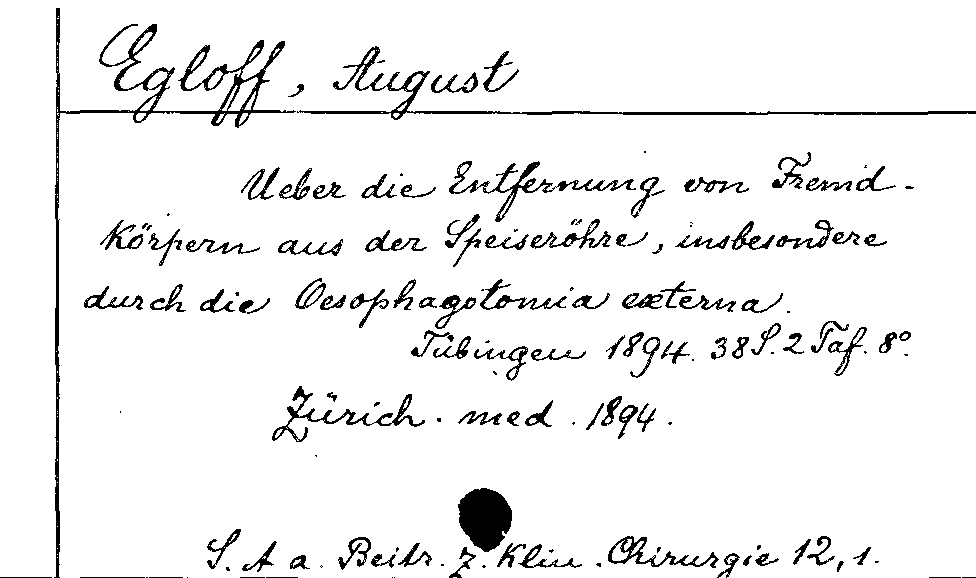 Egloff, August
Ueber die Entfernung von Fremd-
körpern aus der Speiseröhre, insbesondere
durch die Oesophagotomia externa.
Tübingen 1894. 38 S. 2 Taf. 8°.
Zürich. med. 1894.
S. A a. Beitr. z. Klin. Chirurgie 12, 1.